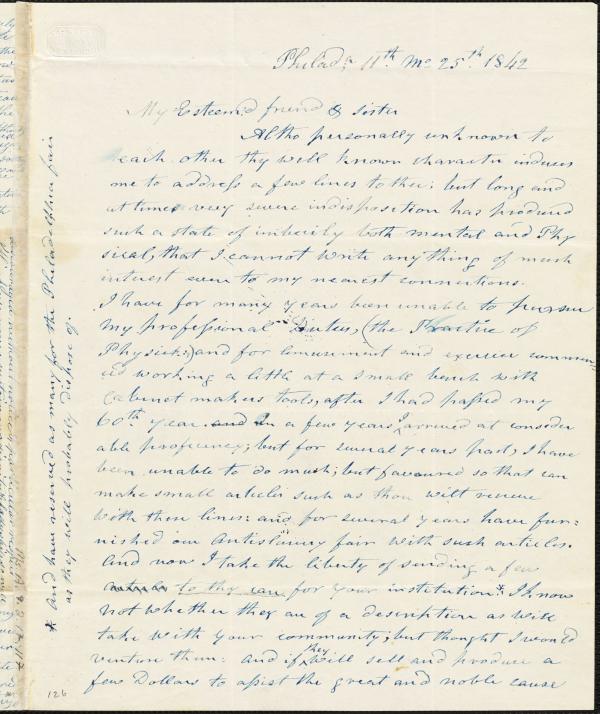 Philad.a 11th. Mo 25th. 1842
My Esteemed friend & sister
Altho personally unknown to
each other thy well known character induces
me to address a few lines to thee: but long and
at times very severe indisposition has produced
such a state of imbecility both mental and Phy
sical, that I cannot write anything of much
interest even to my nearest connections.
I have for many years been unable to pursue
my professional Duties, (the Practice of
Physick;) and for amusement and exercise commen
ced working a little at a small bench with
Cabinet makers tools, after I had passed my
60th year. and In a few years I arrived at consider
able proficiency; but for several years past, I have
been unable to do much; but favoured so that can
make small articles such as thou wilt receive
with these lines: and for several years have fur=
nished our Antislavery fair with such articles.
And now I take the liberty of sending a few
to thy care for your institution* I know
not whether they are of a description as will
take with your community; but thought I would
venture them: and if they will sell and produce a
few Dollars to assist the great and noble cause
* And have reserved as many for the Philadelphia fair
as they will probably dispose of.
126